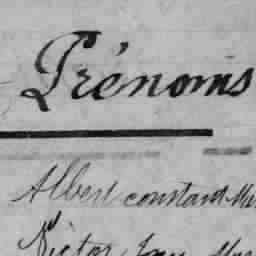 Prénoms
Albert constant Ma
Victor